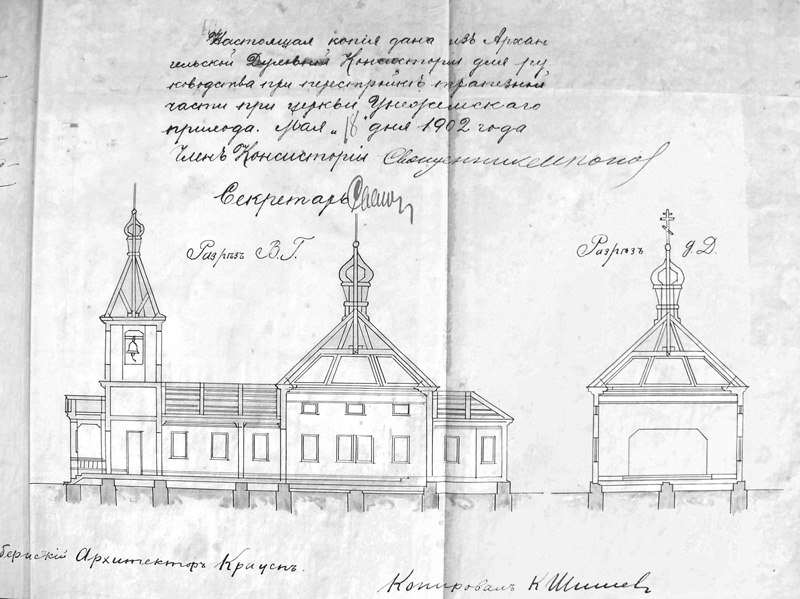 Настоящая копія дана изъ Архан
гельской Духовной Консисторіи для ру
ководства при перестройкѣ трапезной
части при церкви Унежемскаго
прихода. Мая „18" дня 1902 года
Членъ Консисторіи Священник
Секретарь
Разрѣзъ В.Г.
Разрѣзъ д.Д.
бернскій Архитекторъ
Копировалъ К